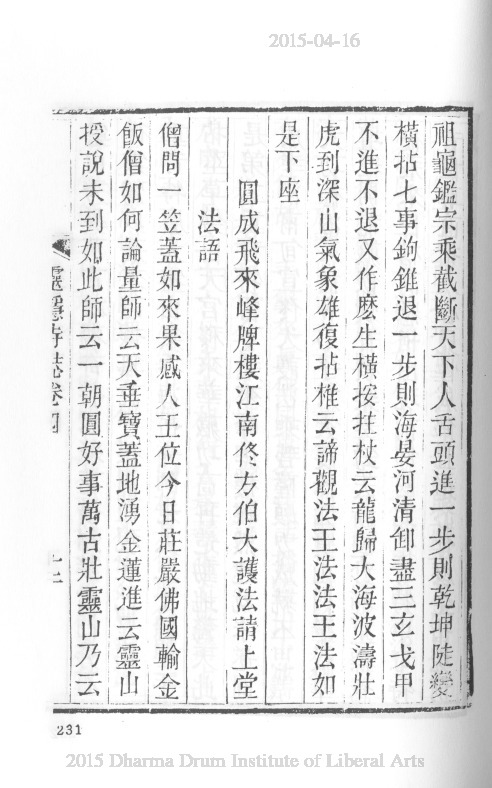 2015-04-16
祖龜鑑宗乘截斷天下人舌頭進一步則乾坤陡變
橫拈七事鉤錐退一步則海晏河清卸盡三玄戈甲
不進不退又作麽生橫按拄杖云龍歸大海波濤壯
虎到深山氣象雄復拈椎云諦觀法王法法王法如
是下座
圓成飛來峰牌樓江南佟方伯大護法請上堂
法語
僧問一笠蓋如來果感人王位今日莊嚴佛國輸金
飯僧如何論量師云天垂寶蓋地湧金蓮進云靈山
授說未到如此師云一朝圓好事萬古壯靈山乃云
靈隱寺誌卷四
231
2015 Dharma Drum Institute of Liberal Arts